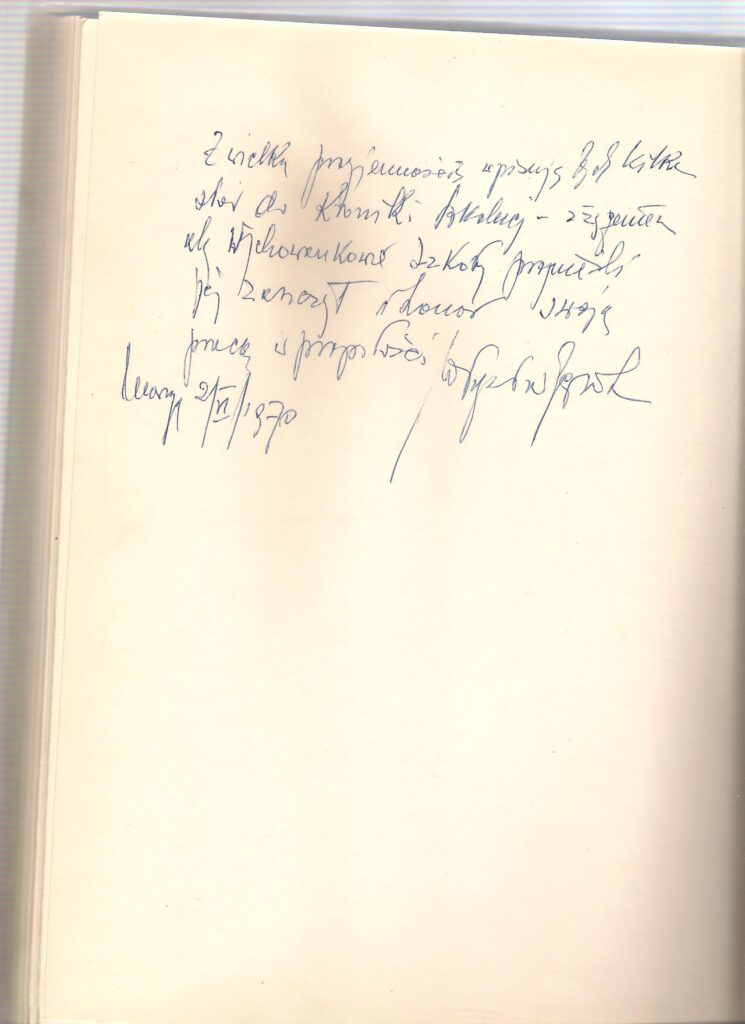 Z wielką przyjemnością wpisuję tych kilka
słów do Kroniki Szkolnej – z życzeniem
aby Wychowankowie Szkoły przynieśli
jej zaszczyt i honor swoją
pracą w przyszłości
2/VI/1970